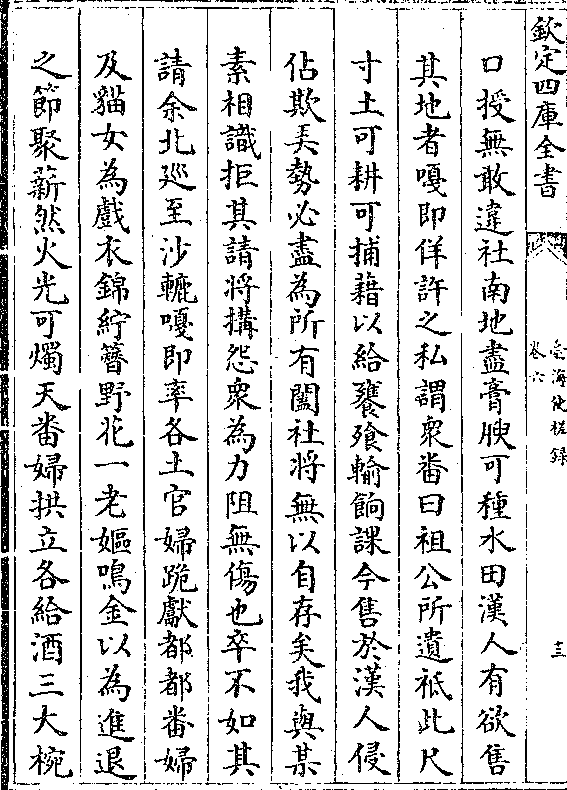 欽定四庫全書
臺海使槎録
卷六
三
口授無敢違社南地盡膏腴可種水田漢人有欲售
其地者嘎即佯許之私謂衆畨曰祖公所遺祗此尺
寸土可耕可捕藉以給饔飱輸餉課今售於漢人侵
佔欺弄勢必盡為所有闔社將無以自存矣我與某
素相識拒其請將搆怨衆為力阻無傷也卒不如其
請余北廵至沙轆嘎即率各土官婦跪獻都都番婦
及貓女為戲衣錦紵簪野花一老嫗鳴金以為進退
之節聚薪然火光可燭天畨婦拱立各給酒三大椀